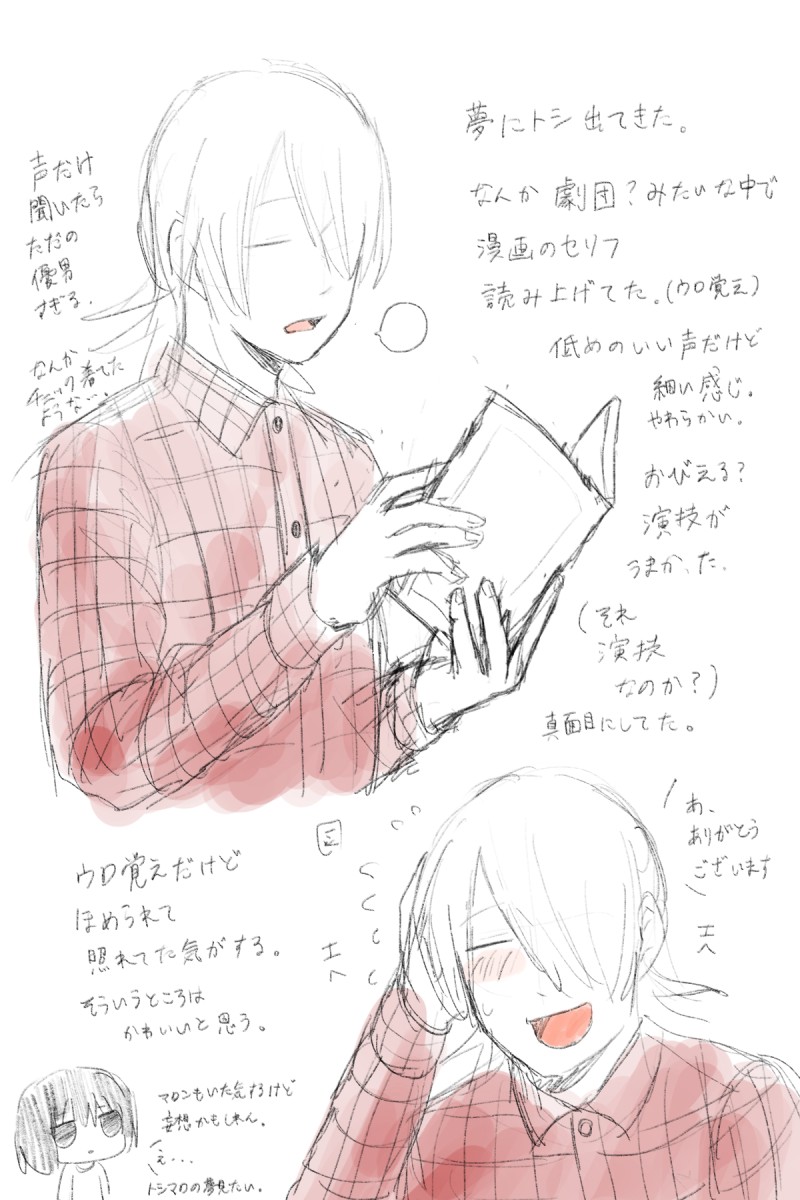 夢にトシ出てきた。
なんか劇団?みたいな中で
漫画のセリフ
読み上げてた。(ウロ覚え)
低めのいい声だけど
細い感じ。
やわらかい。
おびえる?
演技が
うまかった。
(それ
演技
なのか?)
真面目にしてた。
声だけ
聞いたら
ただの
優男
すぎる.
なんか
チェック着てた
ような..
あ、
ありがとう
ございます
ウロ覚えだけど
ほめられて
照れてた気がする。
そういうところは
かわいいと思う。
マロンもいた気するけど
妄想かもしれん.
え...
トシマロの夢見たい.